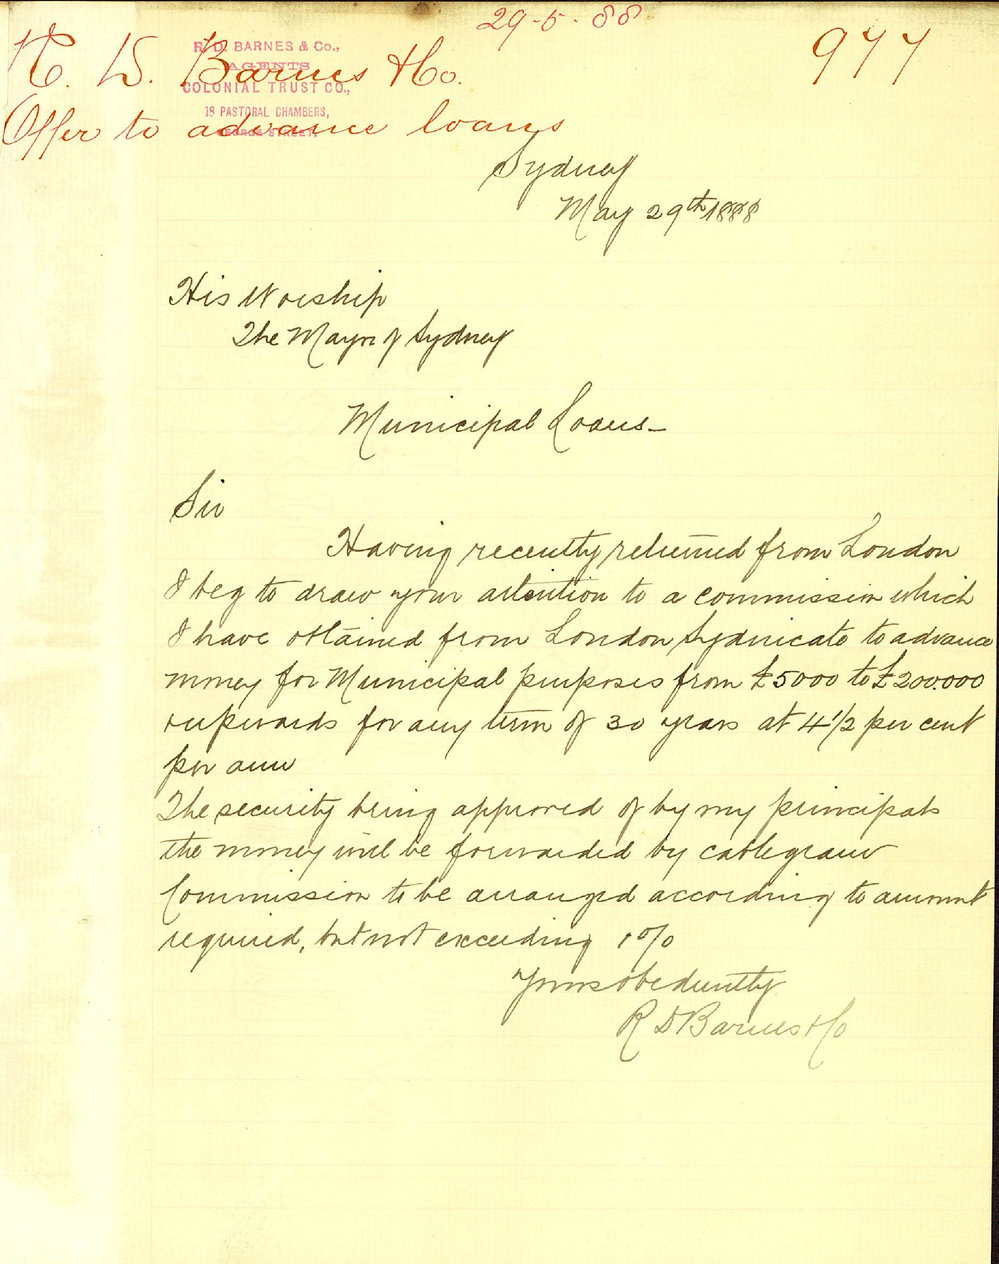 29-5-88
977
R. D. Barnes & Co.
Offer to advance loans
R. D. BARNES & Co.,
AGENTS
COLONIAL TRUST CO.,
18 PASTORAL CHAMBERS,
GEORGE STREET,
Sydney
May 29th 1888
His Worship
The Mayor of Sydney
Municipal Loans-
Sir
Having recently returned from London
I beg to draw your attention to a commission which
I have obtained from London Sydnicate to advance
money for Municipal purposes from £5000 to £200.000
& upwards for any term of 30 years at 4 1/2 per cent
per ann
The security being approved of by my principals
the money will be forwarded by cablegram
Commission to be arranged according to amount
required, but not exceeding 1 %
Yours obediently
R D Barnes & Co